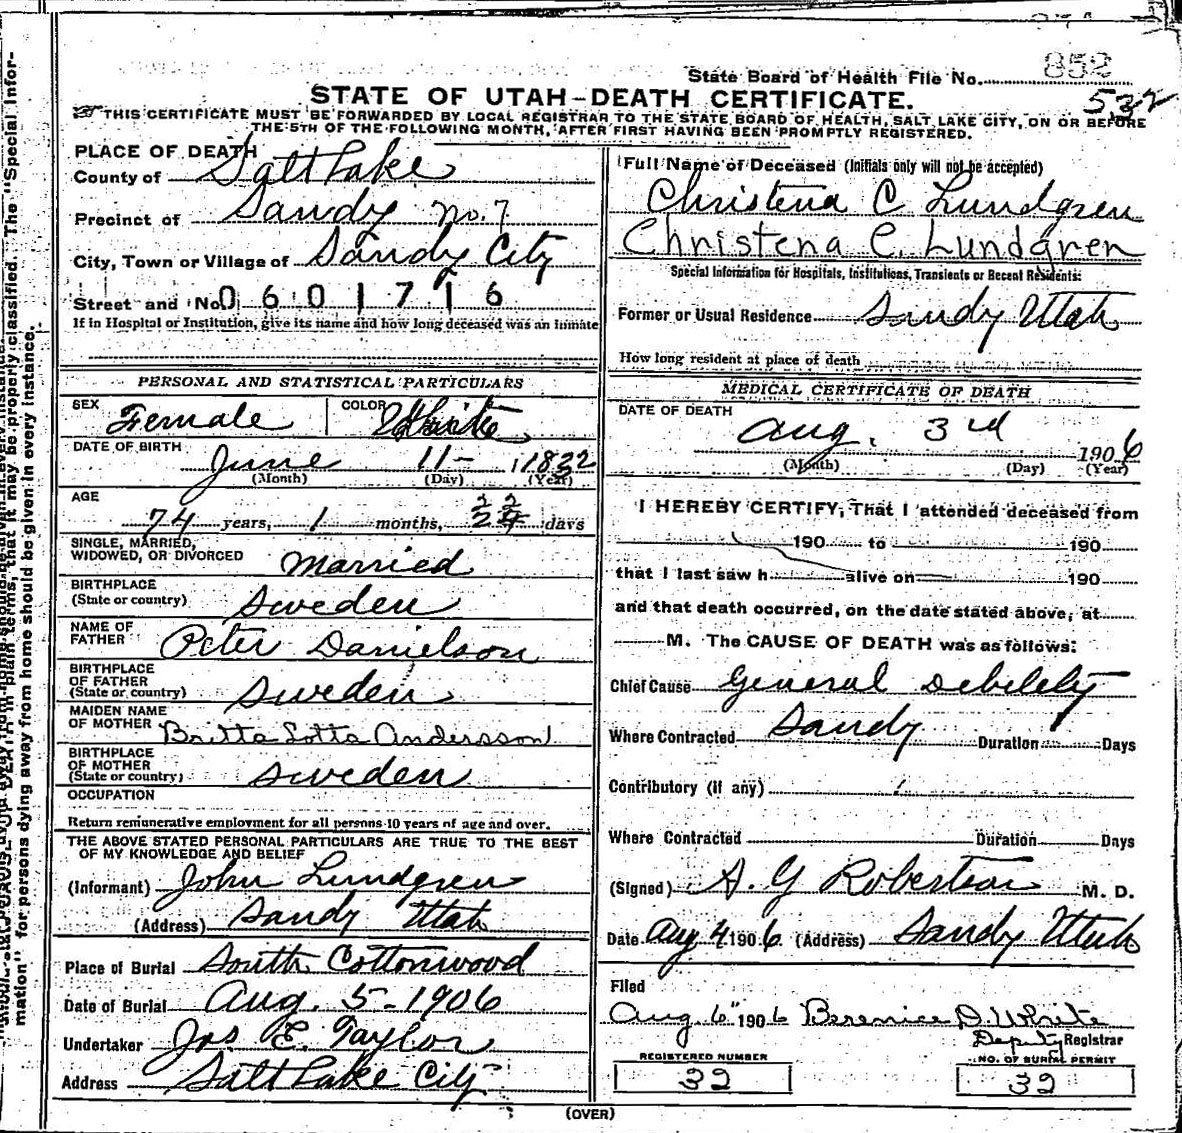 852
State Board of Health File No.
532
STATE OF UTAH-DEATH CERTIFICATE.
THIS CERTIFICATE MUST BE FORWARDED BY LOCAL REGISTRAR TO THE STATE BOARD OF HEALTH, SALT LAKE CITY, ON OR BEFORE
THE 5TH OF THE FOLLOWING MONTH, AFTER FIRST HAVING BEEN PROMPTLY REGISTERED.
PLACE OF DEATH
County of Salt Lake
Precinct of Sandy No. 7
City, Town or Village of Sandy City
Street and No. 0601716
If in Hospital or Institution, give its name and how long deceased was an inmate
PERSONAL AND STATISTICAL PARTICULARS
SEX Female COLOR White
DATE OF BIRTH
June 11- 1832
(Month) (Day) (Year)
AGE
74 years, 1 months, 24 days
22
SINGLE, MARRIED,
WIDOWED, OR DIVORCED Married
BIRTHPLACE
(State or country) Sweden
NAME OF
FATHER Peter Danielson
BIRTHPLACE
OF FATHER
(State or country) Sweden
MAIDEN NAME
OF MOTHER Britta Lotta Andersson
BIRTHPLACE
OF MOTHER
(State or country) Sweden
OCCUPATION
Return remunerative employment for all persons 10 years of age and over.
THE ABOVE STATED PERSONAL PARTICULARS ARE TRUE TO THE BEST
OF MY KNOWLEDGE AND BELIEF
(Informant) John Lundgren
(Address) Sandy Utah
Place of Burial South Cottonwood
Date of Burial Aug. 5-1906
Undertaker Jos E. Taylor
Address Salt Lake City
Full Name of Deceased (Initials only will not be accepted)
Christena C Lundgren
Christena C. Lundgren
Special Information for Hospitals, Institutions, Transients or Recent Residents:
Former or Usual Residence Sandy Utah
How long resident at place of death
MEDICAL CERTIFICATE OF DEATH
DATE OF DEATH
Aug. 3rd 1906
(Month) (Day) (Year)
I HEREBY CERTIFY, That I attended deceased from
190 to 190
that I last saw h alive on 190
and that death occurred, on the date stated above, at
M. The CAUSE OF DEATH was as follows:
Chief Cause General Debelety
Where Contracted Sandy Duration Days
Contributory (if any)
Where Contracted Duration Days
(Signed) A. G Robertson M. D.
Date Aug 4 1906 (Address) Sandy Utah
Filed
Aug 6" 1906 Berenice D. White
Deputy Registrar
REGISTERED NUMBER
32
NO. OF BURIAL PERMIT
32
(OVER)
plain terms, that it may be properly classified. The "Special Infor-
mation" for persons dying away from home should be given in every instance.